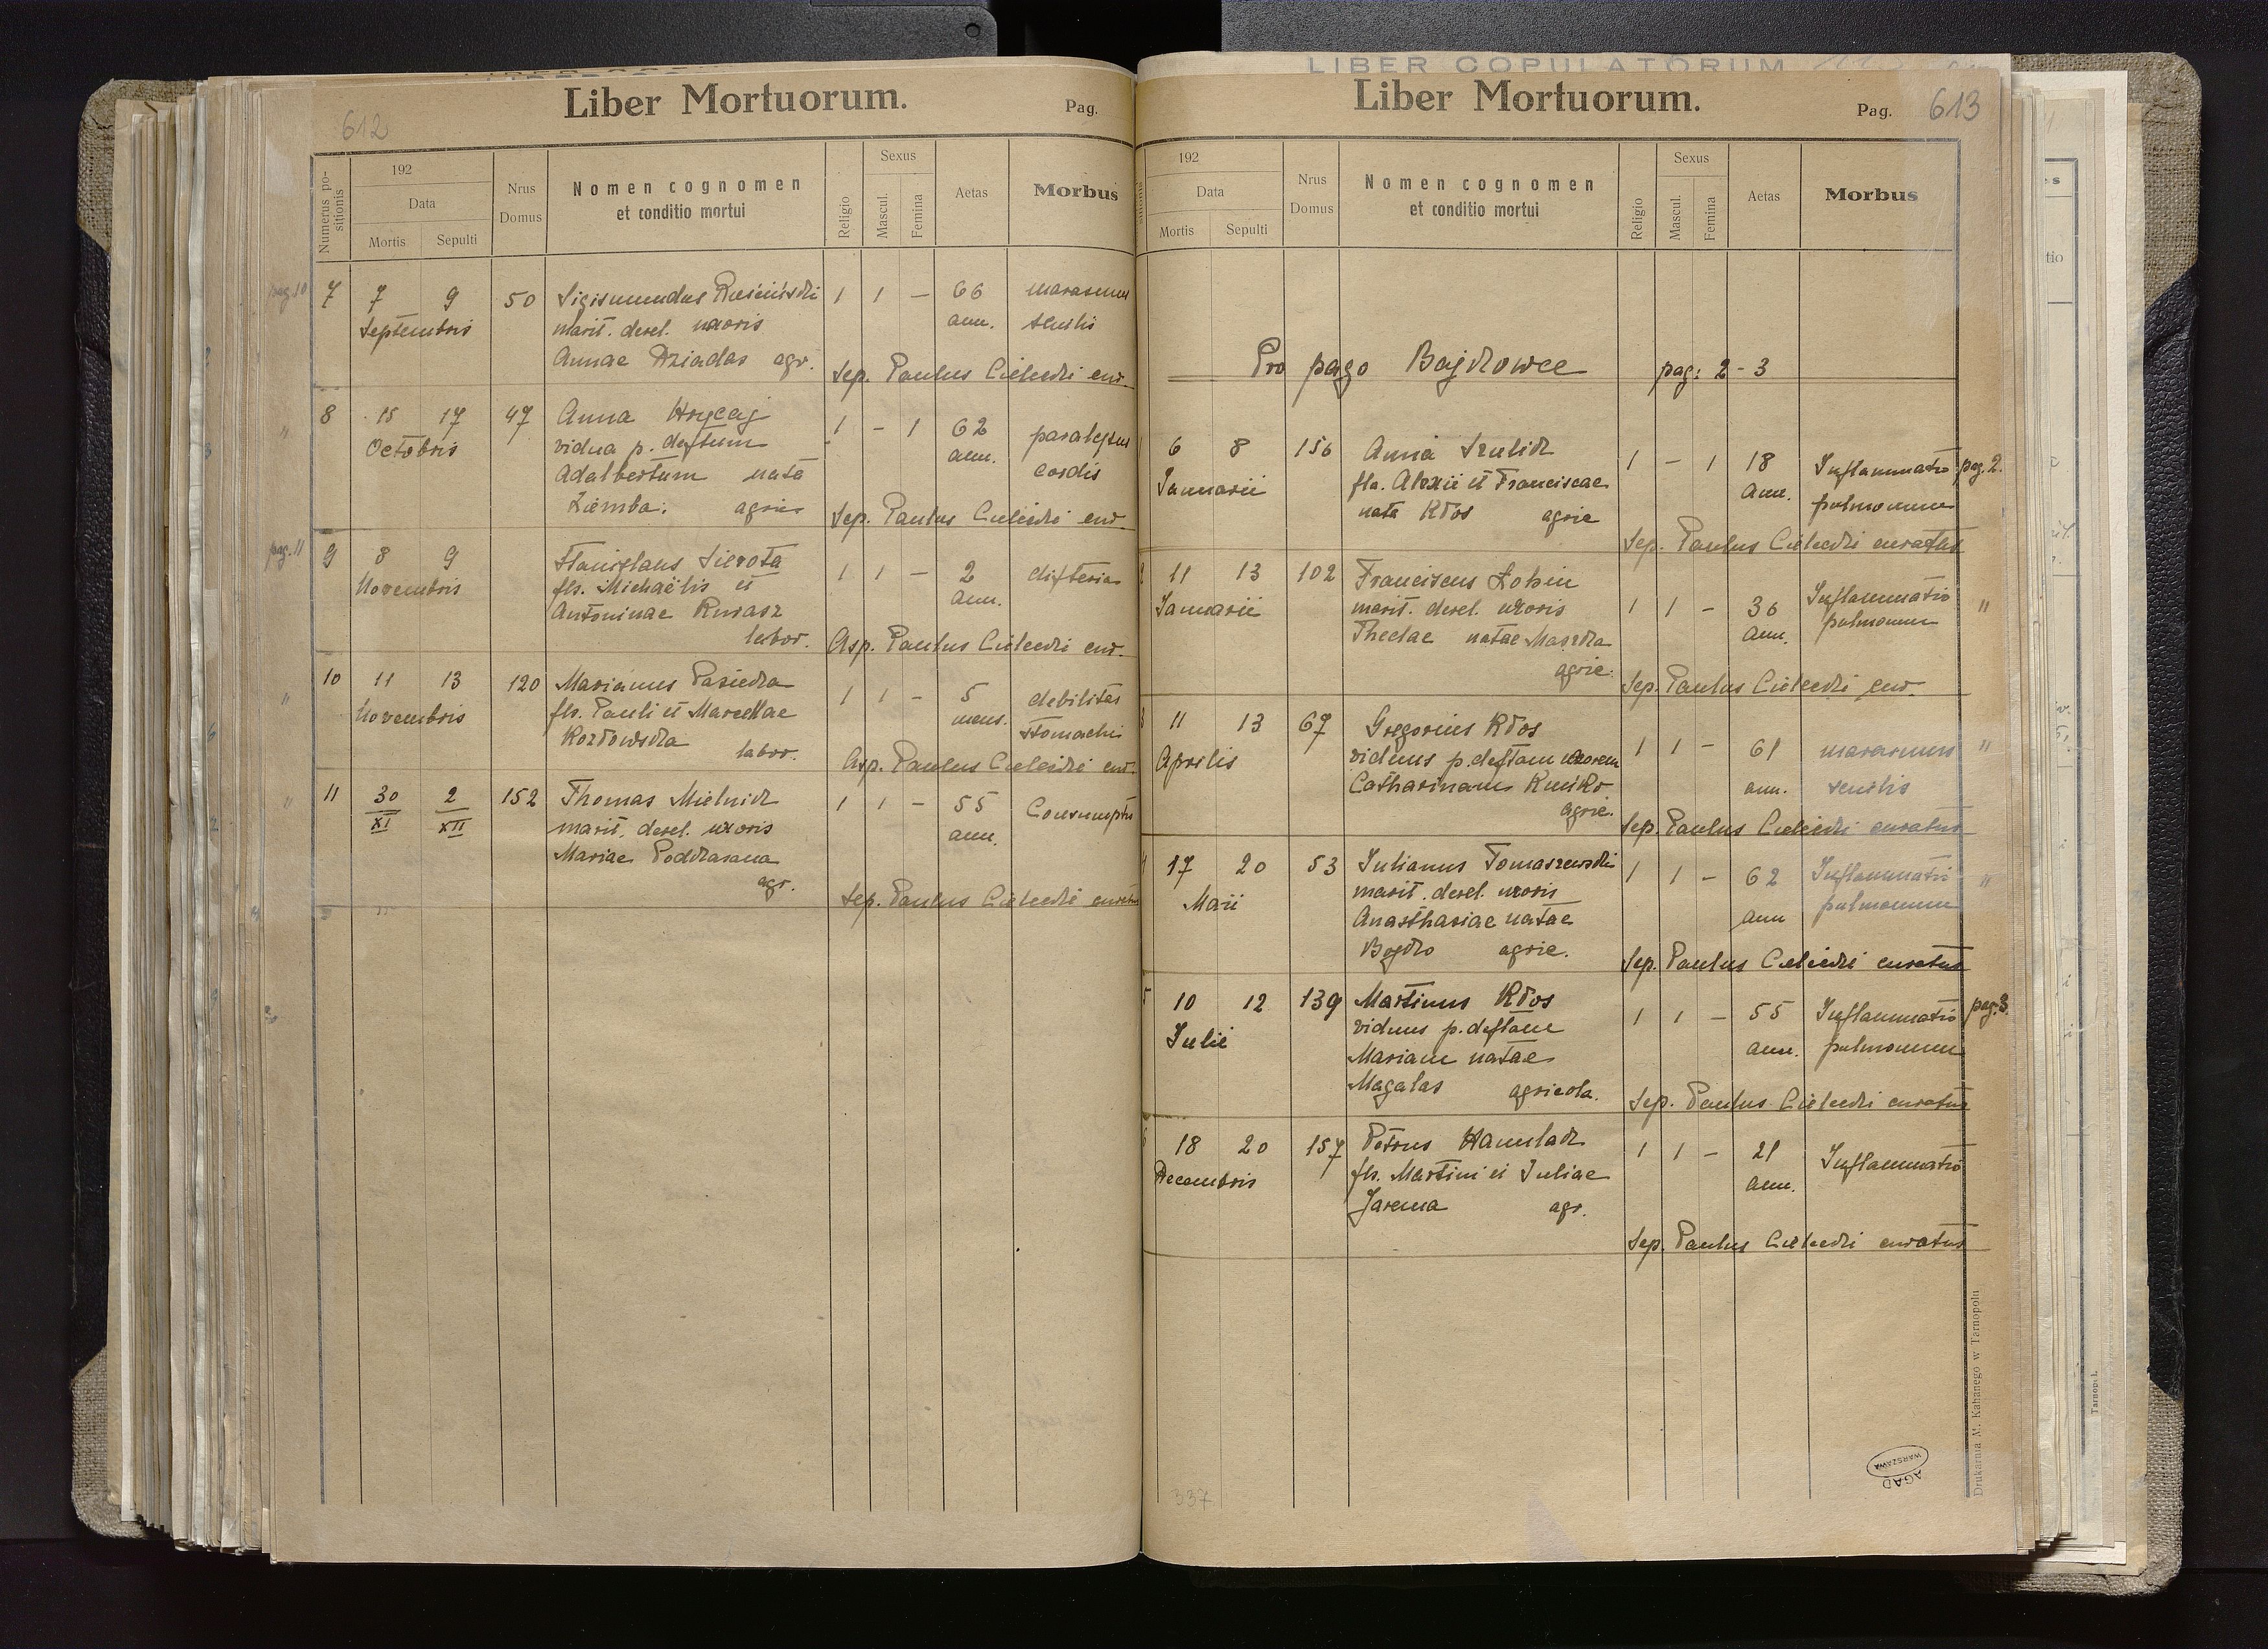 LIBER COPULATORUM
612
Liber Mortuorum.
Pag.
Numerus positionis
192
Data
Mortis
Sepulti
Nrus Domus
Nomen cognomen et conditio mortui
Religio
Sexus
Mascul.
Femina
Aetas
Morbus
pag. 10 7 7 9 50 Sigismundus 1 1 — 66 marasmus
Septembris marit. derel. uxoris ann. senilis
Annae Dziadas agr.
Sep. Paulus Cielecki cur.
" 8 15 17 47 Anna Hrycaj 1 - 1 62 paralysus
Octobris vidua p. deftum ann. cordis
Adalbertum nata
Ziemba. agric
Sep. Paulus Cielecki cur
pag. 11 9 8 9 Stanislaus Sierota 1 1 — 2 difteria
Novembris fls. Michaëlis et ann.
Antoninae Kurasz
labor.
Asp. Paulus Cielecki cur.
" 10 11 13 120 Marianus Pasieka 1 1 - 5 debilitas
Novembris fls. Pauli et Marcellae mens. stomachi
Kozłowska labor.
Asp. Paulus Cielecki cur.
" 11 30 2 152 Thomas Mielnik 1 1 - 55 Consumptio
XI XII marit. derel. uxoris ann.
Mariae Podkasana
agr.
Sep. Paulus Cielecki curatus
Liber Mortuorum.
Pag. 613
sitionis
192
Data
Mortis
Sepulti
Nrus Domus
Nomen cognomen et conditio mortui
Religio
Sexus
Mascul.
Femina
Aetas
Morbus
Pro pago Bajkowce pag: 2-3
1 6 8 156 Anna Szulik 1 - 1 18 Inflammatio pag. 2.
Januarii fla. Alexii et Franciscae Ann. pulmonum
nata Kłos agric
Sep. Paulus Cielecki curatus
2 11 13 102 Franciscus Łobin 1 1 - 36 Inflammatio "
Januarii marit. derel. uxoris Ann. pulmonum
Theclae natae Maszka
agric.
Sep. Paulus Cielecki cur.
3 11 13 67 Gregorius Kłos 1 1 - 61 marasmus "
Aprilis viduus p. deftam uxorem ann. senilis
Catharinam Kuśko
agric.
Sep. Paulus Cielecki curatus
4 17 20 53 Julianus Tomaszewski 1 1 - 62 Inflammatio "
Maii marit. derel. uxoris ann pulmonum
Anasthasiae natae
Bojko agric.
Sep. Paulus Cielecki curatus
5 10 12 139 Martinus Kłos 1 1 - 55 Inflammatio pag. 3.
Julii viduus p. deftam ann. pulmonum
Mariam natae
Magalas agricola.
Sep. Paulus Cielecki curatus
6 18 20 157 Petrus Hamulak 1 1 - 21 Inflammatio
Decembris fls. Martini et Juliae ann.
Jarema agr.
Sep. Paulus Cielecki curatus
337
AGAD
WARSZAWA
Drukarnia M. Kahanego w Tarnopolu
Tarnopol.